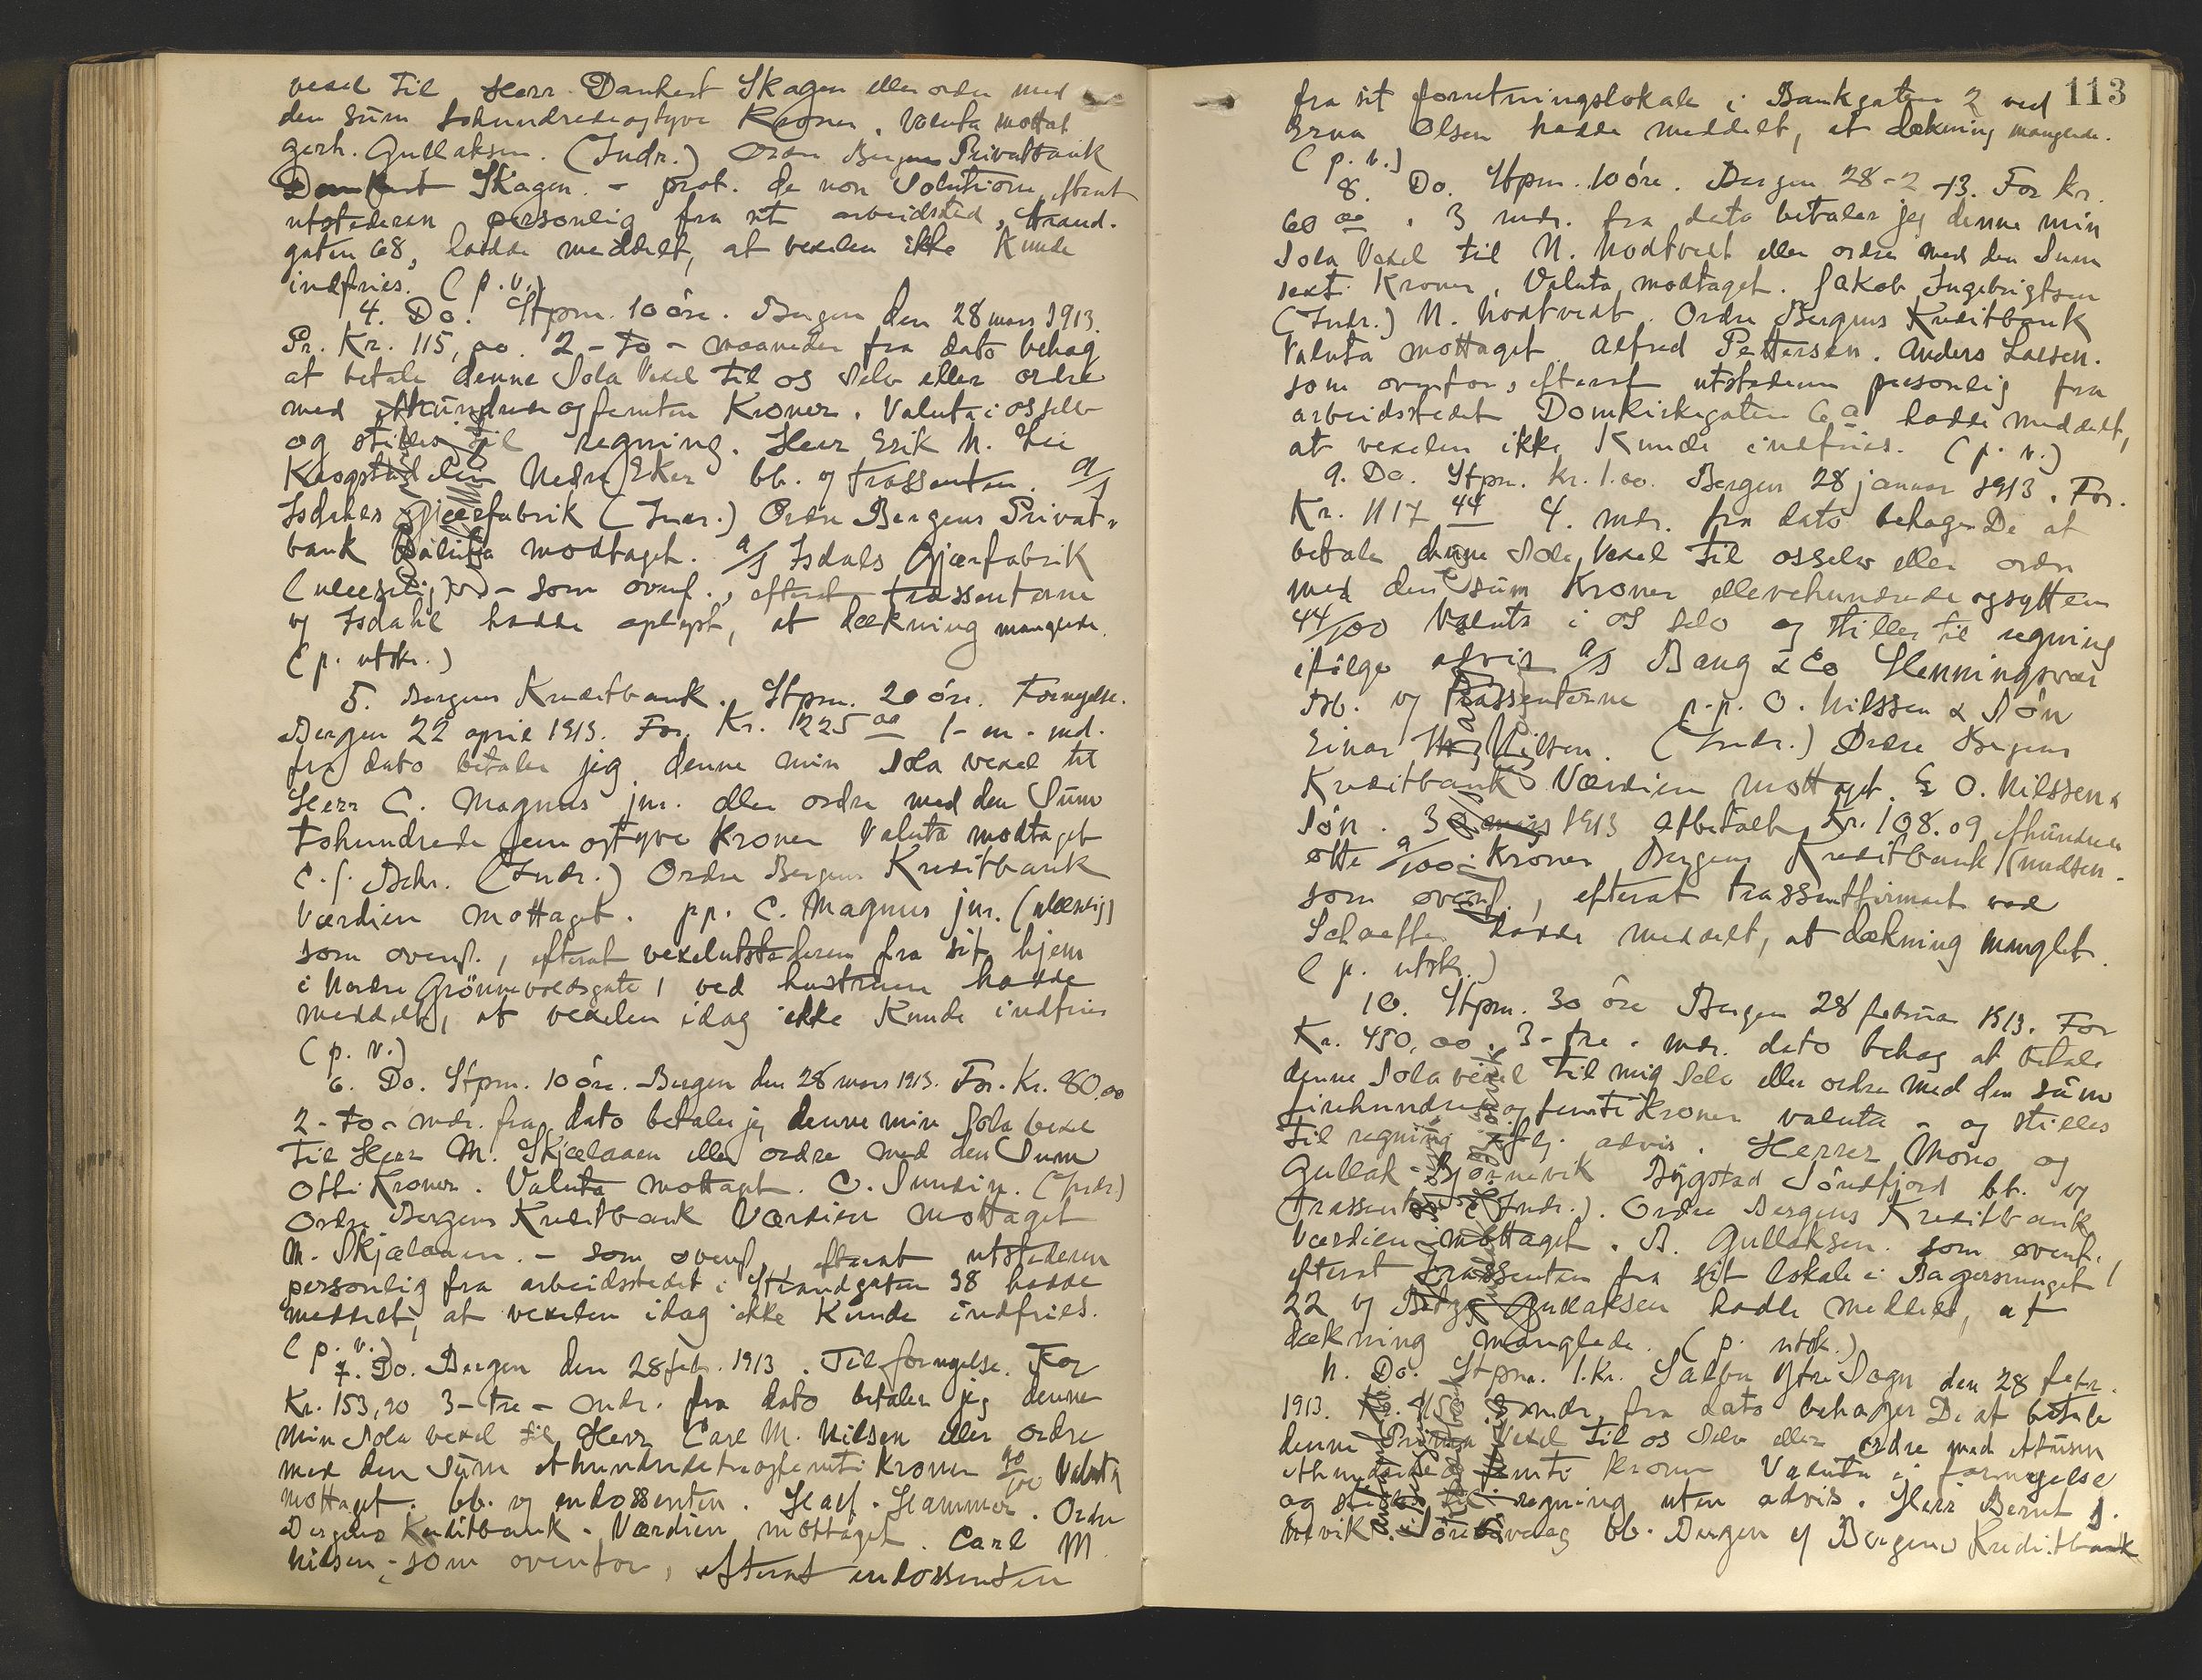 vexel til Herr Dankert Skagen eller ordre med
den Sum tohundredeogtyve Kroner. Valuta mottat
Gerh. Gullaksen. (Indr.) Ordre Bergens Privatbank
Dankert Skagen. - prot. de non Solutione, efterat
utstederen personlig fra sit arbeidsted, Strand-
gaten 68, hadde meddelt, at vexelen ikke kunde
indfries. (p.v.)
4. Do. Stpm. 10 öre. Bergen den 28 mars 1913.
Pr. Kr. 115,00. 2 - to - maaneder fra dato behag
at betale denne Sola Vexel til os selv eller ordre
med ethundrede og femten Kroner. Valuta i os selv
og stilles til regning. Herr Erik N. Lie
Krogstadelen Nedre Eker bb. og trassenten. a/s
Isdahls Gjærfabrik (Indr.) Ordre Bergens Privat-
bank Valuta modtaget. a/s Isdals Gjærfabrik
(ulæselig) - som ovenf., efterat trassenterne
v/ Isdahl hadde oplyst, at dækning manglede.
(p. utskr.)
5. Bergens Kreditbank. Stpm. 20 öre. Fornyelse.
Bergen 22 april 1913. For Kr. 225 00 1 - en - md.
fra dato betaler jeg denne min Sola vexel til
Herr C. Magnus jnr. eller ordre med den Sum
tohundrede fem og tyve Kroner Valuta modtaget
C. f. Behr. (Indr.) Ordre Bergens Kreditbank
Værdien mottaget. pp. C. Magnus jnr. (ulæselig)
som ovenf., efterat vexelutstederen fra sit hjem
i Nordre Grönnevoldsgate 1 ved hustruen hadde
meddelt, at vexelen idag ikke kunde indfries
(p. v.)
6. Do. Stpm. 10 öre. Bergen den 28 mars 1913. For Kr. 80,00
2 - to - mdr. fra dato betaler jeg denne min Sola vexel
til Herr M. Skjælaaen eller ordre med den Sum
Otti Kroner. Valuta mottaget. O. Sundin. (Indr.)
Ordre Bergens Kreditbank Værdien mottaget
M. Skjælaaen. - som ovenf. efterat utstederen
personlig fra arbeidsstedet i Strandgaten 98 hadde
meddelt, at vexelen idag ikke kunde indfries.
(p. v.)
7. Do. Bergen den 28 febr. 1913. Til fornyelse. For
Kr. 153,90 3 - tre - mdr. fra dato betaler jeg denne
min Sola vexel til Herr Carl M. Nilsen eller ordre
med den Sum ethundredetreogfemti Kroner 90/100 Valuta
mottaget. bb. og endossenten. Hammer. Ordre
Bergens Kreditbank. Værdien mottaget. Carl M
Nilsen - som ovenfor, efterat endossenten
113
fra sit forretningslokale i Bankgaten 2 ved
Erna Olsen hadde meddelt, at dækning manglede.
(p. v.)
8. Do. Stpm. 10 öre. Bergen 28-2-13. For kr.
60 00. 3 mdr. fra dato betaler jeg denne min
Sola Vexel til N. Nodtvedt eller ordre med den Sum
sexti Kroner. Valuta modtaget. Jakob Ingebrigtsen
(Indr.) N. Nodtvedt. Ordre Bergens Kreditbank
Valuta mottaget Alfred Pettersen. Anders Larsen.
som ovenfor, efterat utstederen personlig fra
arbeidsstedet Domkirkegaten 6a hadde meddelt,
at vexelen ikke kunde indfries. (p. v.)
9. Do. Stpm. kr. 1.00. Bergen 28 januar 1913. For
Kr. 1117 44 4. mdr. fra dato behager De at
betale denne Sola Vexel til osselv eller ordre
med den sum Kroner ellevehundrede og sytten
44/100 Valuta i os selv og stilles til regning
ifölge advis a/s Bang & Co Henningsvær
bb. og Trassenterne p.p. O. Nilssen & Sön
Einar Nilsen. (Indr.) Ordre Bergens
Kreditbank Værdien mottaget. O. Nilssen &
Sön. 30 mars 1913 Afbetalt Kr. 108.09, ethundrede
otte 9/100 Kroner Bergens Kreditbank Knudsen.
som ovenf., efterat trassentfirmaet ved
Schaeffer hadde meddelt, at dækning manglet.
(p. utskr.)
10. Stpm. 30 öre Bergen 28 februar 1913. For
Kr. 450,00. 3 - tre - mdr. dato behag at betale
denne Sola vexel til mig Selv eller ordre med den sum
firehundredeogfemti Kroner valuta - og stilles
til regning ifölg. advis. Herrer Mons og
Gullak Bjørnevik Bygstad Söndfjord bb. og
Trassenten (Indr.). Ordre Bergens Kreditbank
Værdien mottaget. B. Gullaksen. som ovenf.
efterat trassenten fra sit lokale i Bagersmuget
22 v/ Gullaksen hadde meddelt, at
dækning manglede. (p. utsk.)
11. Do. Stpm. 1. Kr. Salbu Ytre Sogn den 28 febr.
1913. 3 mdr. fra dato behager De at betale
denne Prima Vexel til os selv eller ordre med ettusen
ethundrede femti Kroner Valuta i fornyelse
og stilles til regning uten advis. Herr Bernt J.
bb. Bergen v/ Bergens Kreditbank